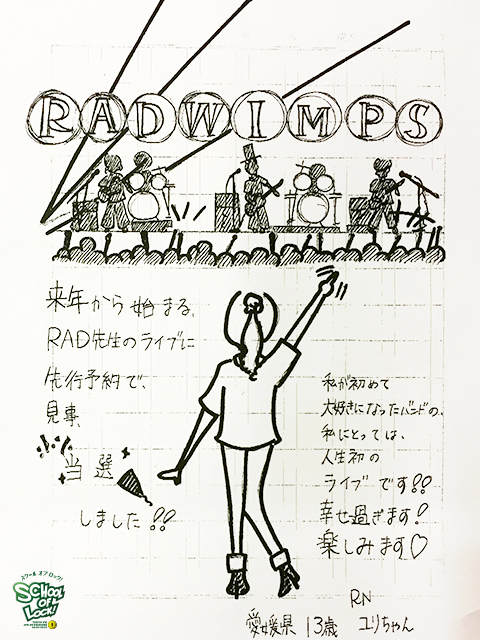 RADWIMPS
来年から始まる、
RAD先生のライブに
先行予約で、
見事、
当選
しました!!
私が初めて
大好きになったバンドの、
私にとっては、
人生初の
ライブです!!
幸せ過ぎます!
楽しみます♡
RN
愛媛県 13歳 ユリちゃん
スクール オブ ロック!
SCHOOL
OF
LOCK!